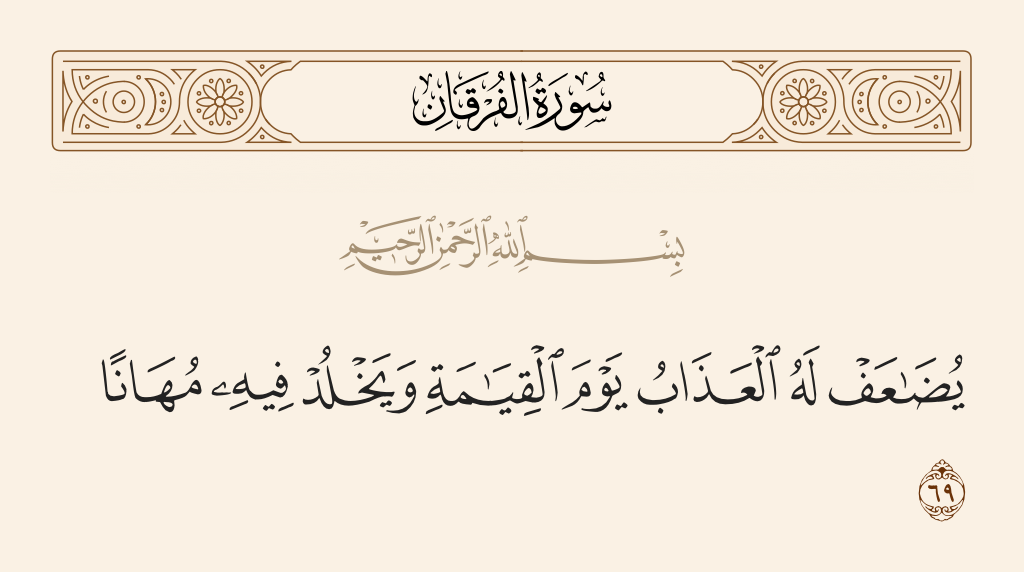 سُورَةُ الفُرْقَانِ
بِسْمِ ٱللَّهِ ٱلرَّحْمَٰنِ ٱلرَّحِيمِ
يُضَٰعَفْ لَهُ ٱلْعَذَابُ يَوْمَ ٱلْقِيَٰمَةِ وَيَخْلُدْ فِيهِۦ مُهَانًا
٦٩